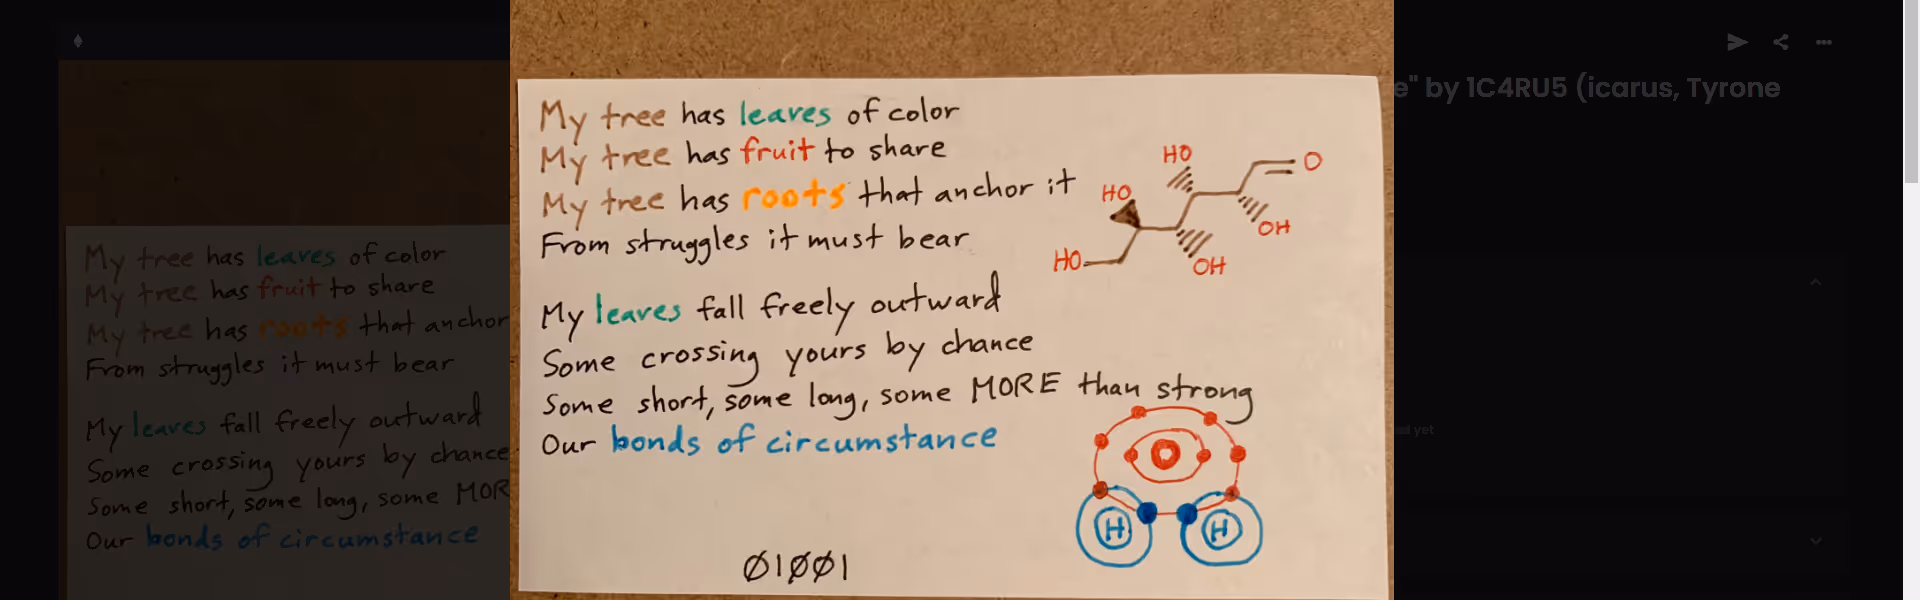 e" by 1C4RU5 (icarus, Tyrone
My tree has leaves of color
My tree has fruit to share
My tree has roots that anchor it
From struggles it must bear
My leaves fall freely outward
Some crossing yours by chance
Some short, some long, some MORE than strong
Our bonds of circumstance
HO
O
HO
OH
HO
OH
O
H H
01001
My tree has leaves of color
My tree has fruit to share
My tree has roots that anchor
From struggles it must bear
My leaves fall freely outward
Some crossing yours by chance
Some short, some long, some MOR
Our bonds of circumstance
yet